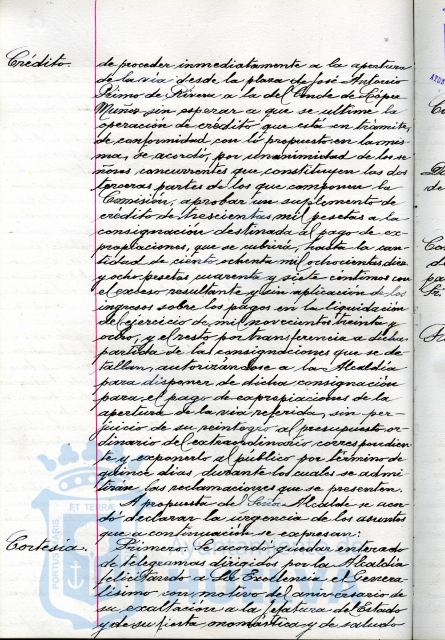 Crédito.
de proceder inmediatamente a la apertura
de la vía desde la plaza de José Antonio
Primo de Rivera a la del Conde de López
Muñoz sin esperar a que se ultime la
operación de crédito que está en trámite,
de conformidad con lo propuesto en la mis-
ma, se acordó, por unanimidad de los se-
ñores concurrentes que constituyen las dos
terceras partes de los que componen la
Comisión, aprobar un suplemento de
crédito de trescientas mil pesetas a la
consignación destinada al pago de ex-
propiaciones, que se cubrirá, hasta la can-
tidad de ciento ochenta mil ochocientas diez
y ocho pesetas cuarenta y siete céntimos con
el exceso resultante y sin aplicación de los
ingresos sobre los pagos en la liquidación
del ejercicio de mil novecientos treinta y
ocho, y el resto por transferencia a dicha
partida de las consignaciones que se de-
tallan, autorizándose a la Alcaldía
para disponer de dicha consignación
para el pago de expropiaciones de la
apertura de la vía referida, sin per-
juicio de su reintegro al presupuesto or-
dinario del extraordinario correspondien-
te y exponerlo al público por término de
quince días, durante los cuales se admi-
tirán las reclamaciones que se presenten.
A propuesta del Señor Alcalde se acor-
dó declarar la urgencia de los asuntos
que a continuación se expresan:
Cortesía.
Primero. Se acordó quedar enterado
de telegramas dirigidos por la Alcaldía
felicitando a Su Excelencia el Genera-
lísimo con motivo del aniversario de
su exaltación a la Jefatura del Estado
y de su fiesta onomástica y de saludo
PORTUS MARIS
ET TERRAE